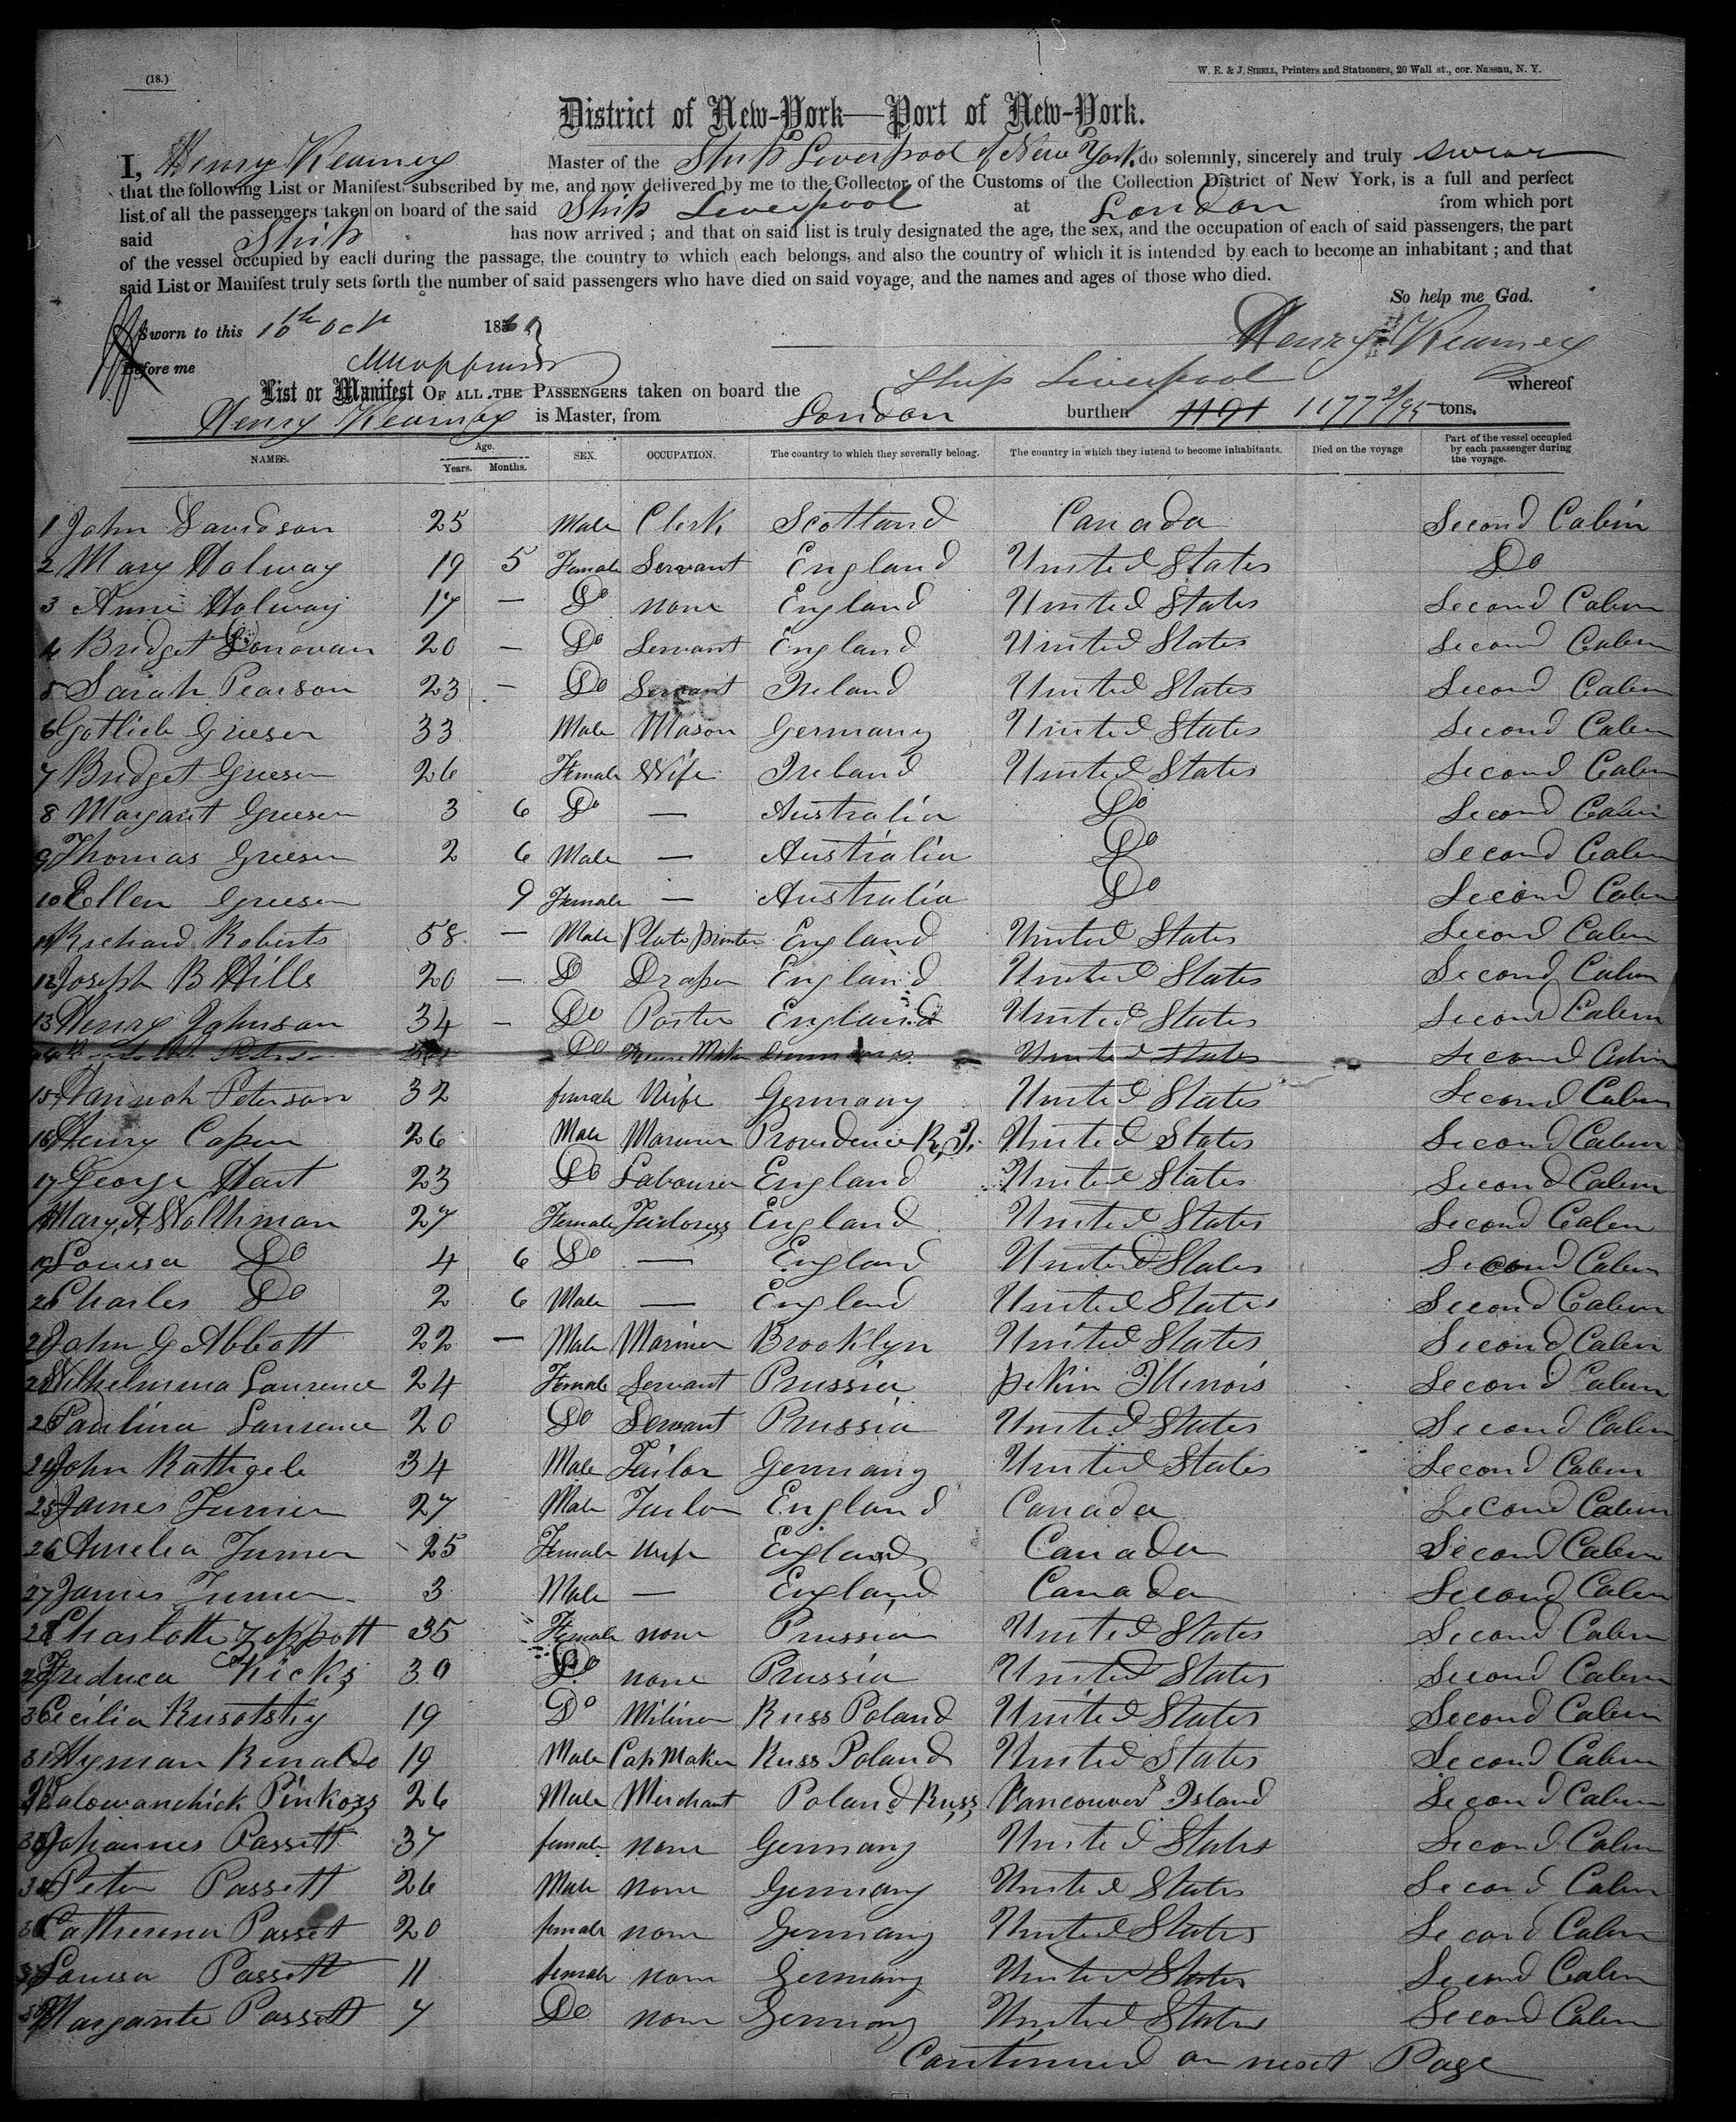 (18.)
W. E. & J. SIBELL, Printers and Stationers, 20 Wall st., cor. Nassau, N. Y.
District of New-York—Port of New-York.
I, Henry Kearney Master of the Ship Liverpool of New York, do solemnly, sincerely and truly swear
that the following List or Manifest subscribed by me, and now delivered by me to the Collector of the Customs of the Collection District of New York, is a full and perfect
list of all the passengers taken on board of the said Ship Liverpool at London from which port
said Ship has now arrived; and that on said list is truly designated the age, the sex, and the occupation of each of said passengers, the part
of the vessel occupied by each during the passage, the country to which each belongs, and also the country of which it is intended by each to become an inhabitant; and that
said List or Manifest truly sets forth the number of said passengers who have died on said voyage, and the names and ages of those who died.
So help me God.
Sworn to this 10th Oct 1860
Henry Kearney
Before me
List or Manifest OF ALL THE PASSENGERS taken on board the Ship Liverpool whereof
Henry Kearney is Master, from London burthen 1191 1177 2/95 tons.
NAMES. Age. Years. Months. SEX. OCCUPATION. The country to which they severally belong. The country in which they intend to become inhabitants. Died on the voyage Part of the vessel occupied by each passenger during the voyage.
1 John Davidson 25 Male Clerk Scotland Canada Second Cabin
2 Mary Holway 19 5 Female Servant England United States Do
3 Annie Holway 17 — Do none England United States Second Cabin
4 Bridget Donovan 20 — Do Servant England United States Second Cabin
5 Sarah Pearson 23 — Do Servant Ireland United States Second Cabin
6 Gotlieb Griesen 33 Male Mason Germany United States Second Cabin
7 Bridget Griesen 26 Female Wife Ireland United States Second Cabin
8 Margaret Griesen 3 6 Do — Australia Do Second Cabin
9 Thomas Griesen 2 6 Male — Australia Do Second Cabin
10 Ellen Griesen 9 Female — Australia Do Second Cabin
11 Richard Roberts 58 — Male Plate printer England United States Second Cabin
12 Joseph B Hills 20 — D Draper England United States Second Cabin
13 Henry Johnson 34 — Do Porter England United States Second Cabin
14 Do United States Second Cabin
15 Hannah Peterson 32 female Wife Germany United States Second Cabin
16 Henry Capen 26 Male Mariner Providence R,I. United States Second Cabin
17 George Hart 23 Do Labourer England United States Second Cabin
18 Mary A Wolthman 27 Female Tailoress England United States Second Cabin
19 Louisa Do 4 6 Do — England United States Second Cabin
20 Charles Do 2 6 Male — England United States Second Cabin
21 John G Abbott 22 — Male Mariner Brooklyn United States Second Cabin
22 Wilhelmina Laurence 24 Female Servant Prussia pekin Illinois Second Cabin
23 Paulina Laurence 20 Do Servant Prussia United States Second Cabin
24 John Rathgeb 34 Male Tailor Germany United States Second Cabin
25 James Turner 27 Male Tailor England Canada Second Cabin
26 Amelia Turner 25 Female Wife England Canada Second Cabin
27 James Turner 3 Male — England Canada Second Cabin
28 Charlotte Zeppott 35 Female none Prussia United States Second Cabin
29 Fredrica Kicks 30 Do none Prussia United States Second Cabin
30 Cecilia Rusotsky 19 Do Miliner Russ Poland United States Second Cabin
31 Hyman Rinaldo 19 Male Cap Maker Russ Poland United States Second Cabin
32 Pinkoss 26 Male Merchant Poland Russ Vancouver's Island Second Cabin
33 Johannes Passett 37 female none Germany United States Second Cabin
34 Peter Passett 26 Male none Germany United States Second Cabin
35 Catherina Passet 20 female none Germany United States Second Cabin
36 Louisa Passett 11 female none Germany United States Second Cabin
37 Margarite Passett 7 Do none Germany United States Second Cabin
Continued on next Page